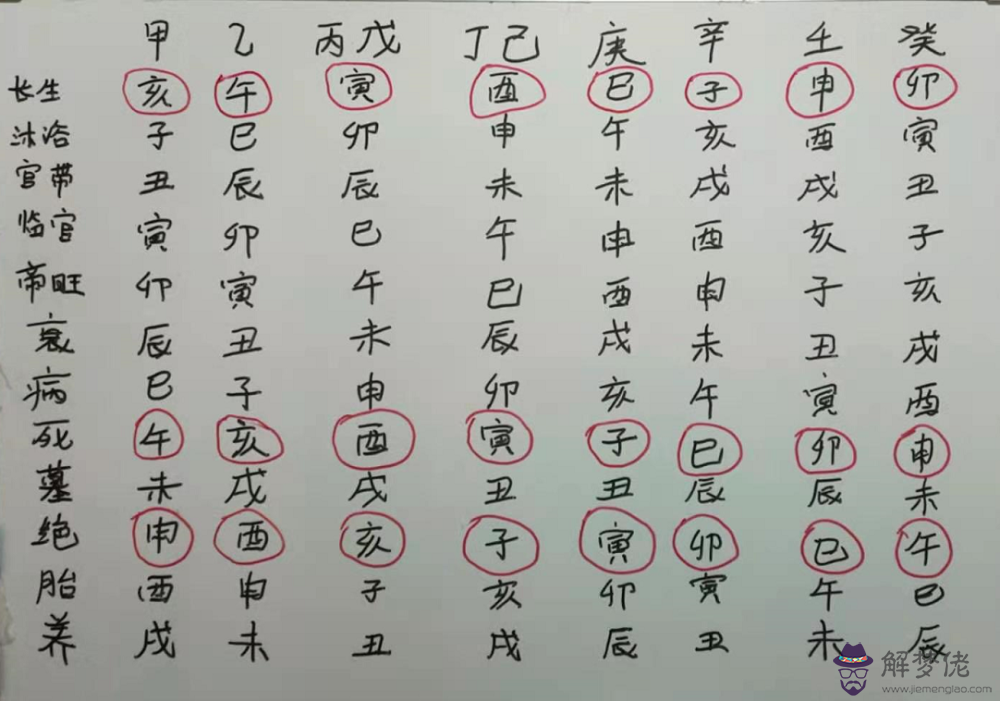 甲 乙 丙戊 丁己 庚 辛 壬 癸
长生 亥 午 寅 酉 巳 子 申 卯
沐浴 子 巳 卯 申 午 亥 酉 寅
官带 丑 辰 辰 未 未 戌 戌 丑
临官 寅 卯 巳 午 申 酉 亥 子
帝旺 卯 寅 午 巳 酉 申 子 亥
衰 辰 丑 未 辰 戌 未 丑 戌
病 巳 子 申 卯 亥 午 寅 酉
死 午 亥 酉 寅 子 巳 卯 申
墓 未 戌 戌 丑 丑 辰 辰 未
绝 申 酉 亥 子 寅 卯 巳 午
胎 酉 申 子 亥 卯 寅 午 巳
养 戌 未 丑 戌 辰 丑 未 辰
解梦佬
www.jiemenglao.com